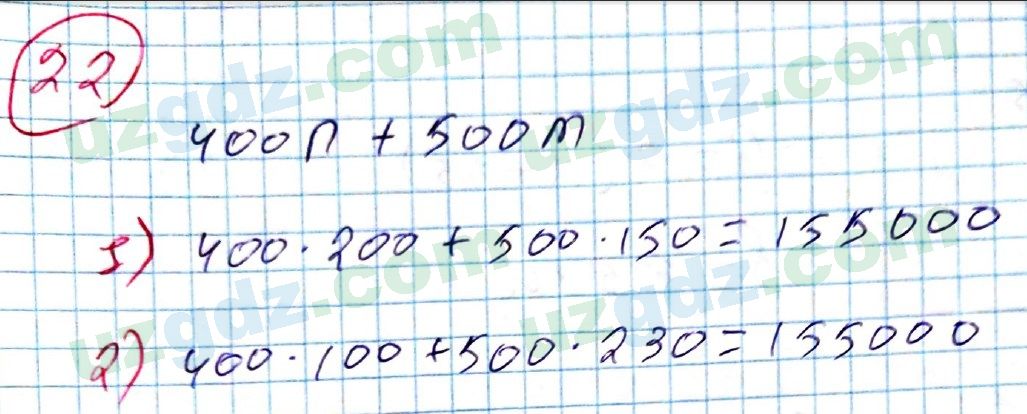 22
400n + 500m
1) 400 · 200 + 500 · 150 = 155000
2) 400 · 100 + 500 · 230 = 155000
uzgdz.com uzgdz.com
uzgdz.com uzgdz.com